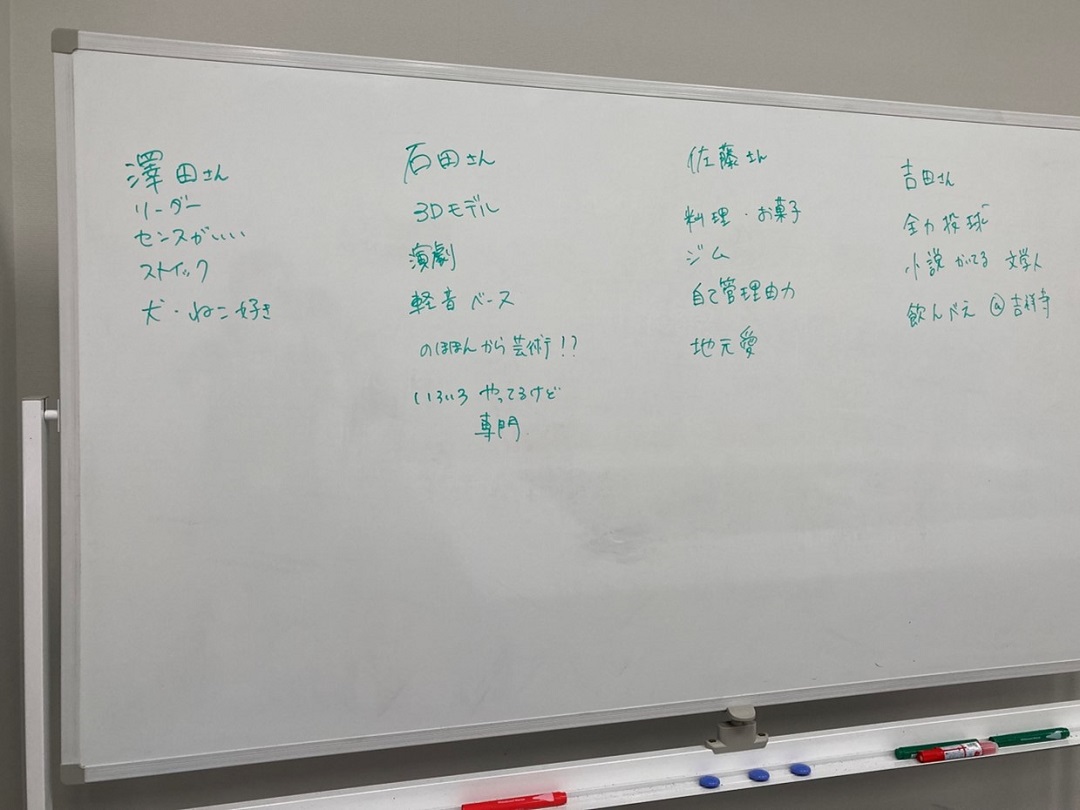 澤田さん
リーダー
センスがいい
ストイック
犬・ねこ好き
石田さん
3Dモデル
演劇
軽音ベース
のほほんから芸術!?
いろいろやってるけど
専門
佐藤さん
料理・お菓子
ジム
自己管理由力
地元愛
吉田さん
全力投球
小説 がてる 文学人
飲んべえ @吉祥寺